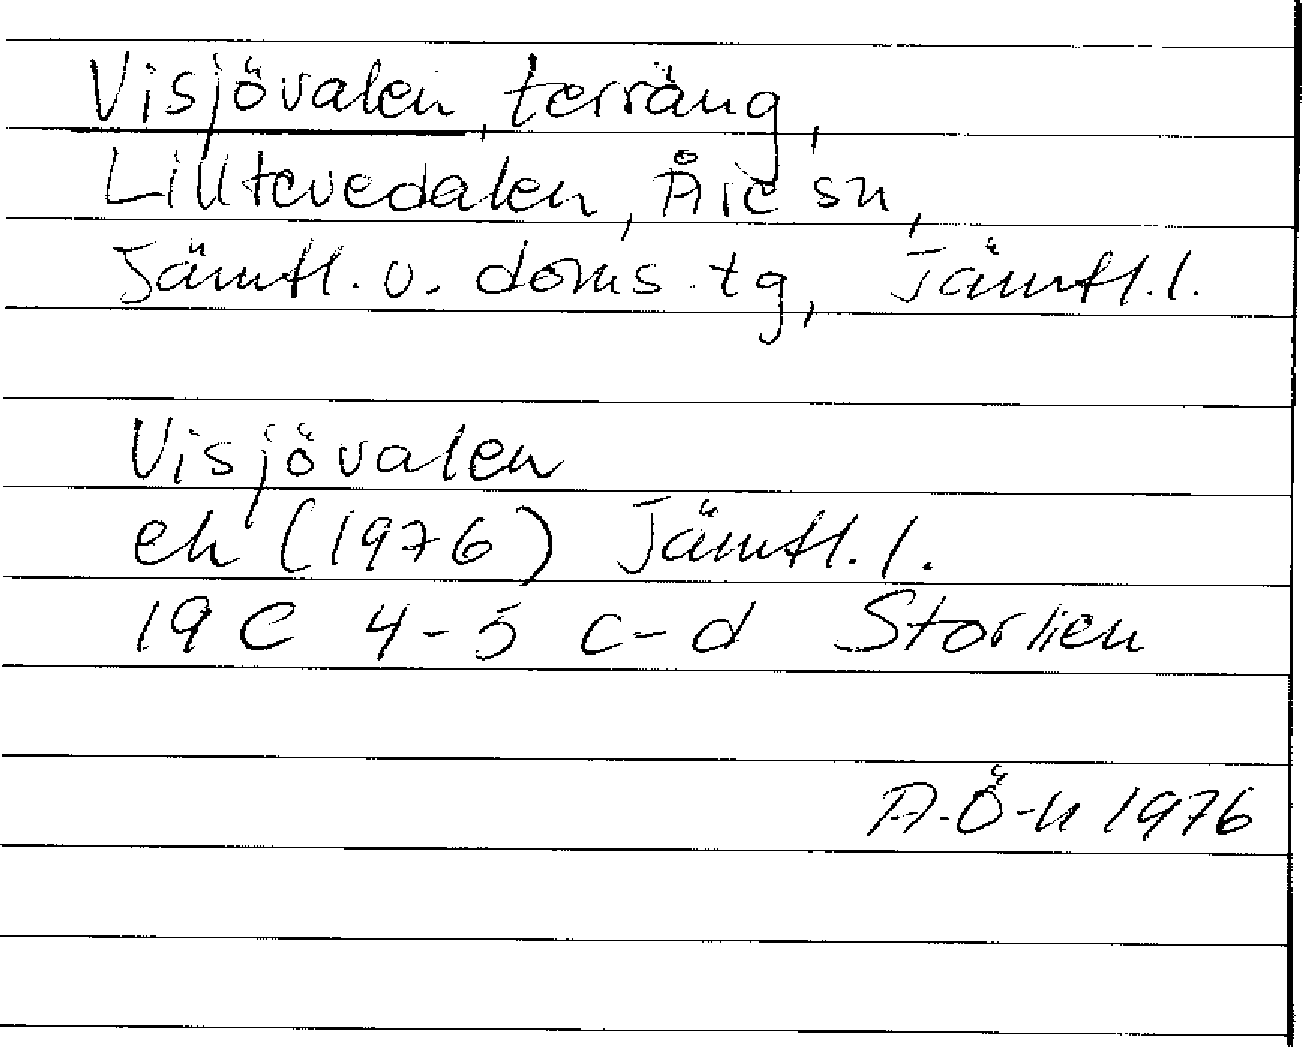 Visjövalen, terräng,
Lilltevedalen, Åre sn,
Jämtl. v. doms. tg, Jämtl. l.
Visjövalen
ek (1976) Jämtl. l.
19 C 4-5 c-d Storlien
A-Ö-n 1976